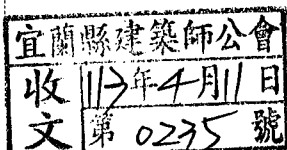 宜蘭縣建築師公會
收文
113年4月11日
第0235號